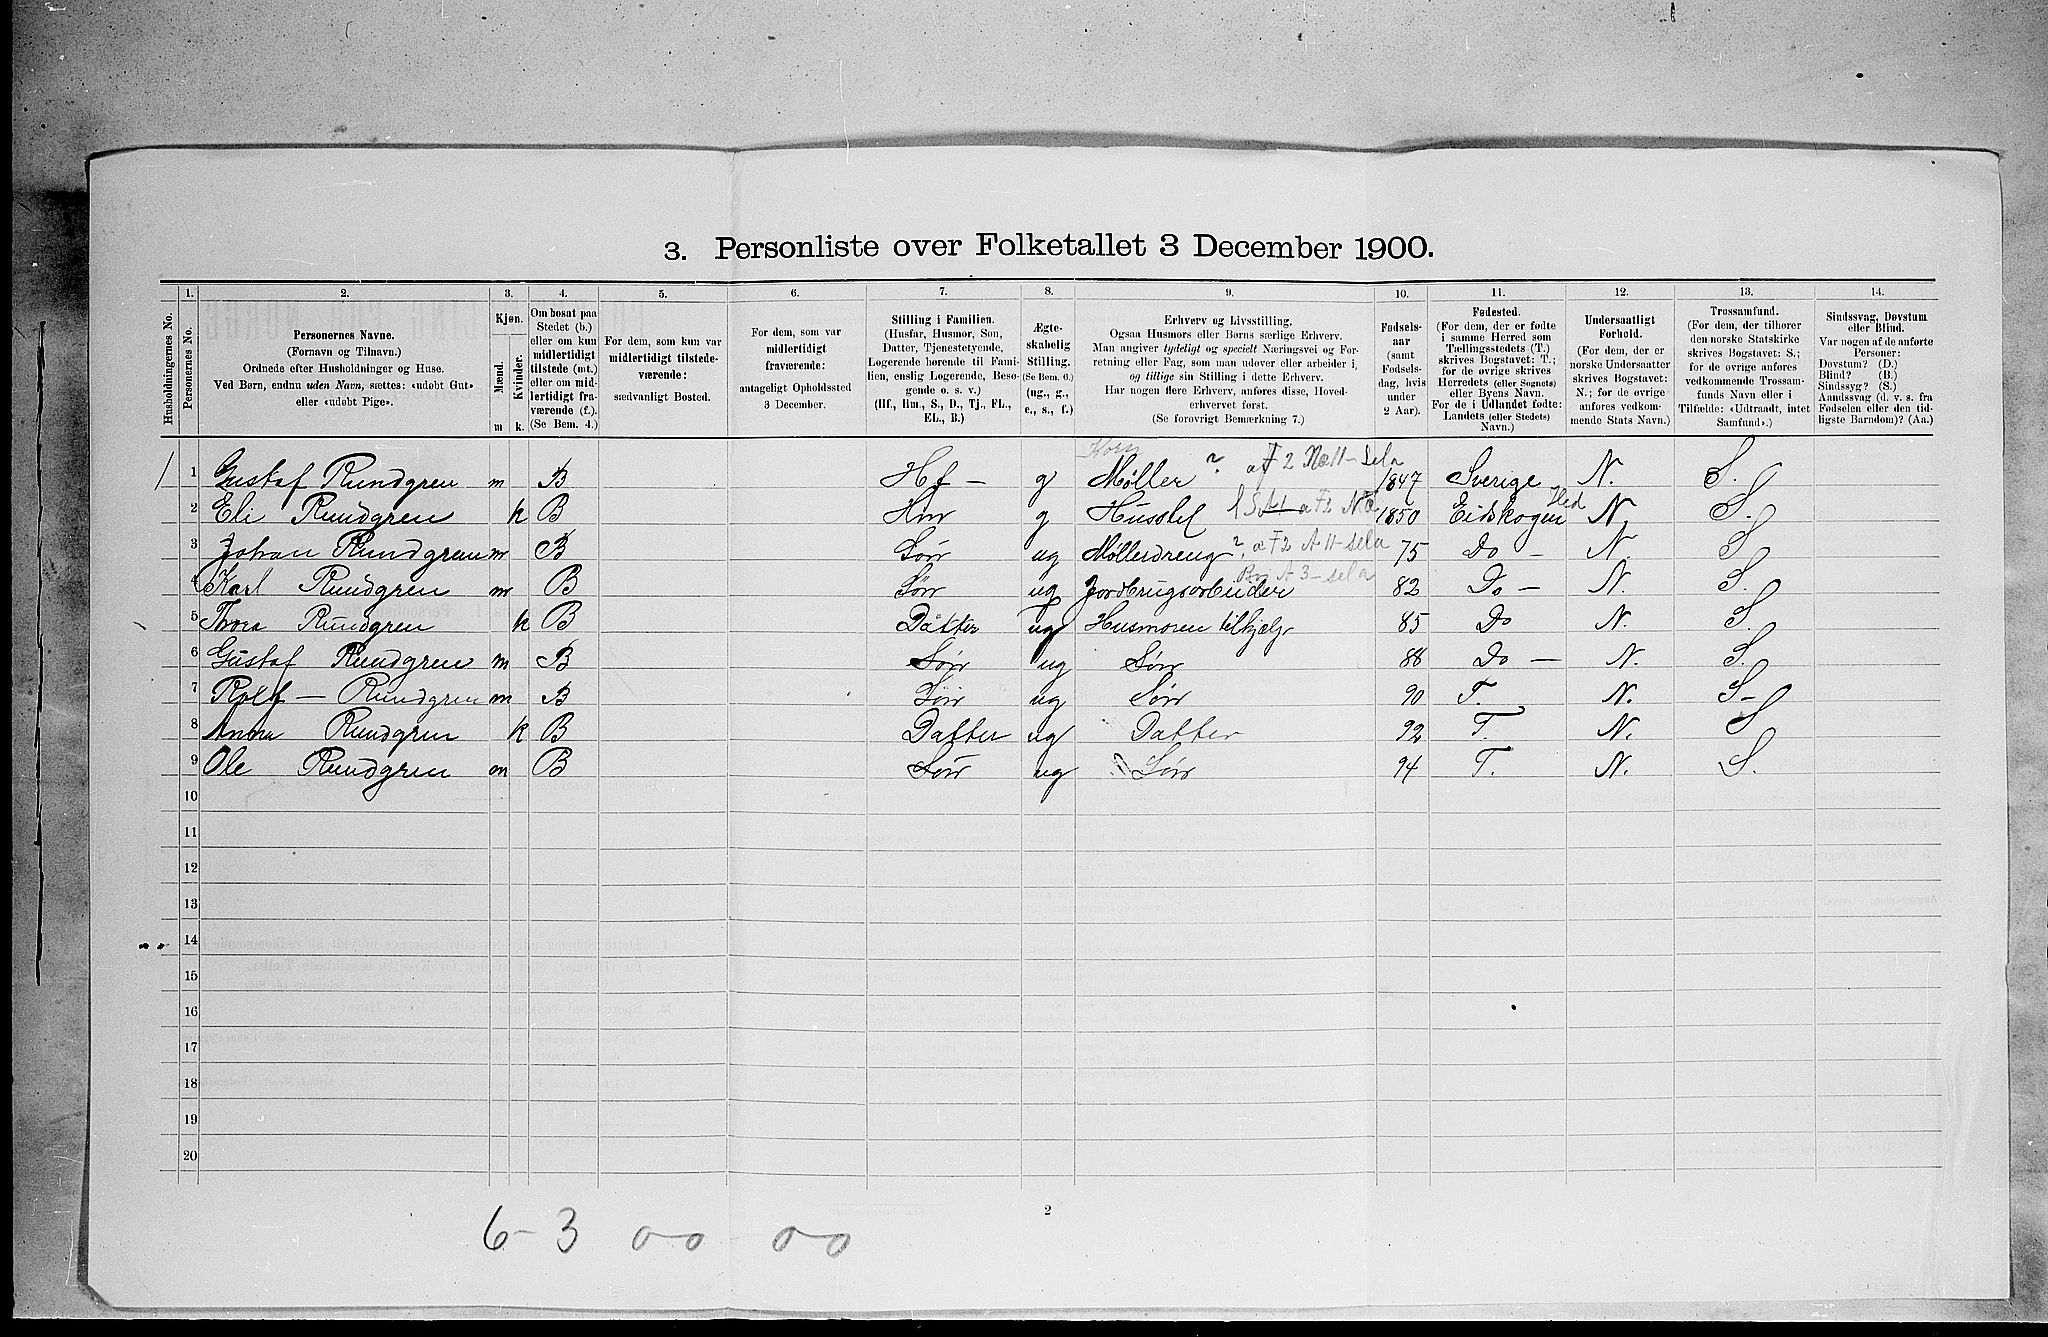 3. Personliste over Folketallet 3 December 1900.
1. 2. 3. 4. 5. 6. 7. 8. 9. 10. 11. 12. 13. 14.
Husholdningernes No.
Personernes No.
Personernes Navne.
(Fornavn og Tilnavn.)
Ordnede efter Husholdninger og Huse.
Ved Børn, endnu uden Navn, sættes: «udøbt Gut»
eller «udøbt Pige».
Kjøn.
Mænd.
Kvinder.
m k.
Om bosat paa
Stedet (b.)
eller om kun
midlertidigt
tilstede (mt.)
eller om mid-
lertidigt fra-
værende (f.).
(Se Bem. 4.)
For dem, som kun var
midlertidigt tilstede-
værende:
sædvanligt Bosted.
For dem, som var
midlertidigt
fraværende:
antageligt Opholdssted
3 December.
Stilling i Familien.
(Husfar, Husmor, Søn,
Datter, Tjenestetyende,
Logerende hørende til Fami-
lien, enslig Logerende, Besø-
gende o. s. v.)
(Hf., Hm., S., D., Tj., FL.,
EL., B.)
Ægte-
skabelig
Stilling.
(Se Bem. 6.)
(ug., g.,
e., s., f.)
Erhverv og Livsstilling.
Ogsaa Husmors eller Børns særlige Erhverv.
Man angiver tydeligt og specielt Næringsvei og For-
retning eller Fag, som man udøver eller arbeider i,
og tillige sin Stilling i dette Erhverv.
Har nogen flere Erhverv, anføres disse, Hoved-
erhvervet først.
(Se forøvrigt Bemærkning 7.)
Fødsels-
aar
(samt
Fødsels-
dag, hvis
under
2 Aar).
Fødested.
(For dem, der er fødte
i samme Herred som
Tællingsstedets (T.)
skrives Bogstavet: T.;
for de øvrige skrives
Herredets (eller Sognets)
eller Byens Navn.
For de i Udlandet fødte:
Landets (eller Stedets)
Navn.)
Undersaatligt
Forhold.
(For dem, der er
norske Undersaatter
skrives Bogstavet:
N.; for de øvrige
anføres vedkom-
mende Stats Navn.)
Trossamfund.
(For dem, der tilhører
den norske Statskirke
skrives Bogstavet: S.;
for de øvrige anføres
vedkommende Trossam-
funds Navn eller i
Tilfælde: «Udtraadt, intet
Samfund».)
Sindssvag, Døvstum
eller Blind.
Var nogen af de anførte
Personer:
Døvstum? (D.)
Blind? (B.)
Sindssyg? (S.)
Aandssvag (d. v. s. fra
Fødselen eller den tid-
ligste Barndom)? (Aa.)
Korn
1 1 Gustaf Rundgren m B Hf — g Møller 1847 Sverige N. S.
2 Eli Rundgren k B Hm g Husstel 1850 Eidskogen Hed N. S.
3 Johan Rundgren m B Søn ug Møllerdreng 75 Do — N. S
4 Karl Rundgren m B Søn ug Jordbrugsarbeider 82 Do — N. S.
5 Thora Rundgren k B Datter ug Husmoren tilhjælp 85 Do N. S
6 Gustaf Rundgren m B Søn ug Søn 88 Do — N. S.
7 Rolf — Rundgren m B Søn ug Søn 90 T. N. S—
8 Anna Rundgren k B Datter ug Datter 92 T. N. S
9 Ole Rundgren m B Søn ug Søn 94 T. N. S.
10
11
12
13
14
15
16
17
18
19
20
2
6-3 00 - 00